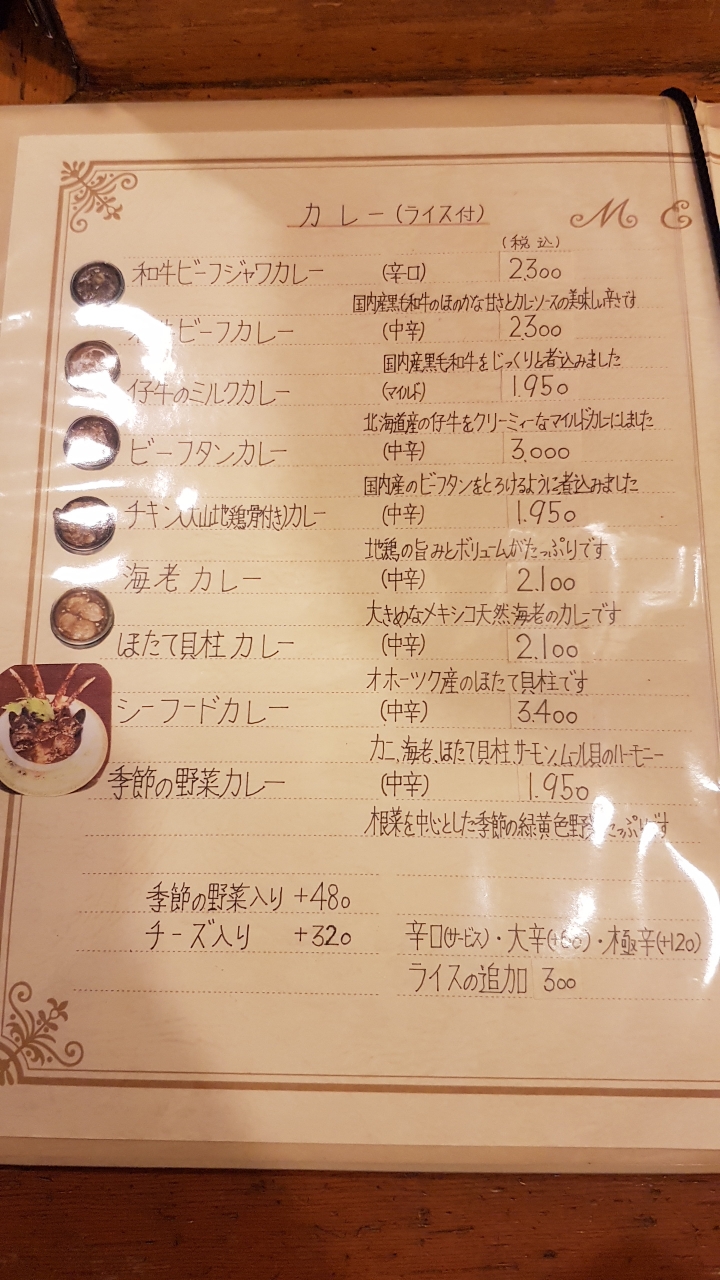 カレー(ライス付)
M E
(税込)
和牛ビーフジャワカレー (辛口) 2.300
国内産黒毛和牛のほのかな甘さとカレーソースの美味しい辛さです
牛ビーフカレー (中辛) 2.300
国内産黒毛和牛をじっくりと煮込みました
仔牛のミルクカレー (マイルド) 1.950
北海道産の仔牛をクリーミィーなマイルドカレーにしました
ビーフタンカレー (中辛) 3.000
国内産のビーフタンをとろけるように煮込みました
チキン(大山地鶏骨付き)カレー (中辛) 1.950
地鶏の旨みとボリュームがたっぷりです
海老カレー (中辛) 2.100
大きめなメキシコ天然海老のカレーです
ほたて貝柱カレー (中辛) 2.100
オホーツク産のほたて貝柱です
シーフードカレー (中辛) 3.400
カニ、海老、ほたて貝柱、サーモン、ムール貝のハーモニー
季節の野菜カレー (中辛) 1.950
根菜を中心とした季節の緑黄色野菜たっぷりです
季節の野菜入り +480
チーズ入り +320
辛口(サービス)・大辛(+60)・極辛(+120)
ライスの追加 300